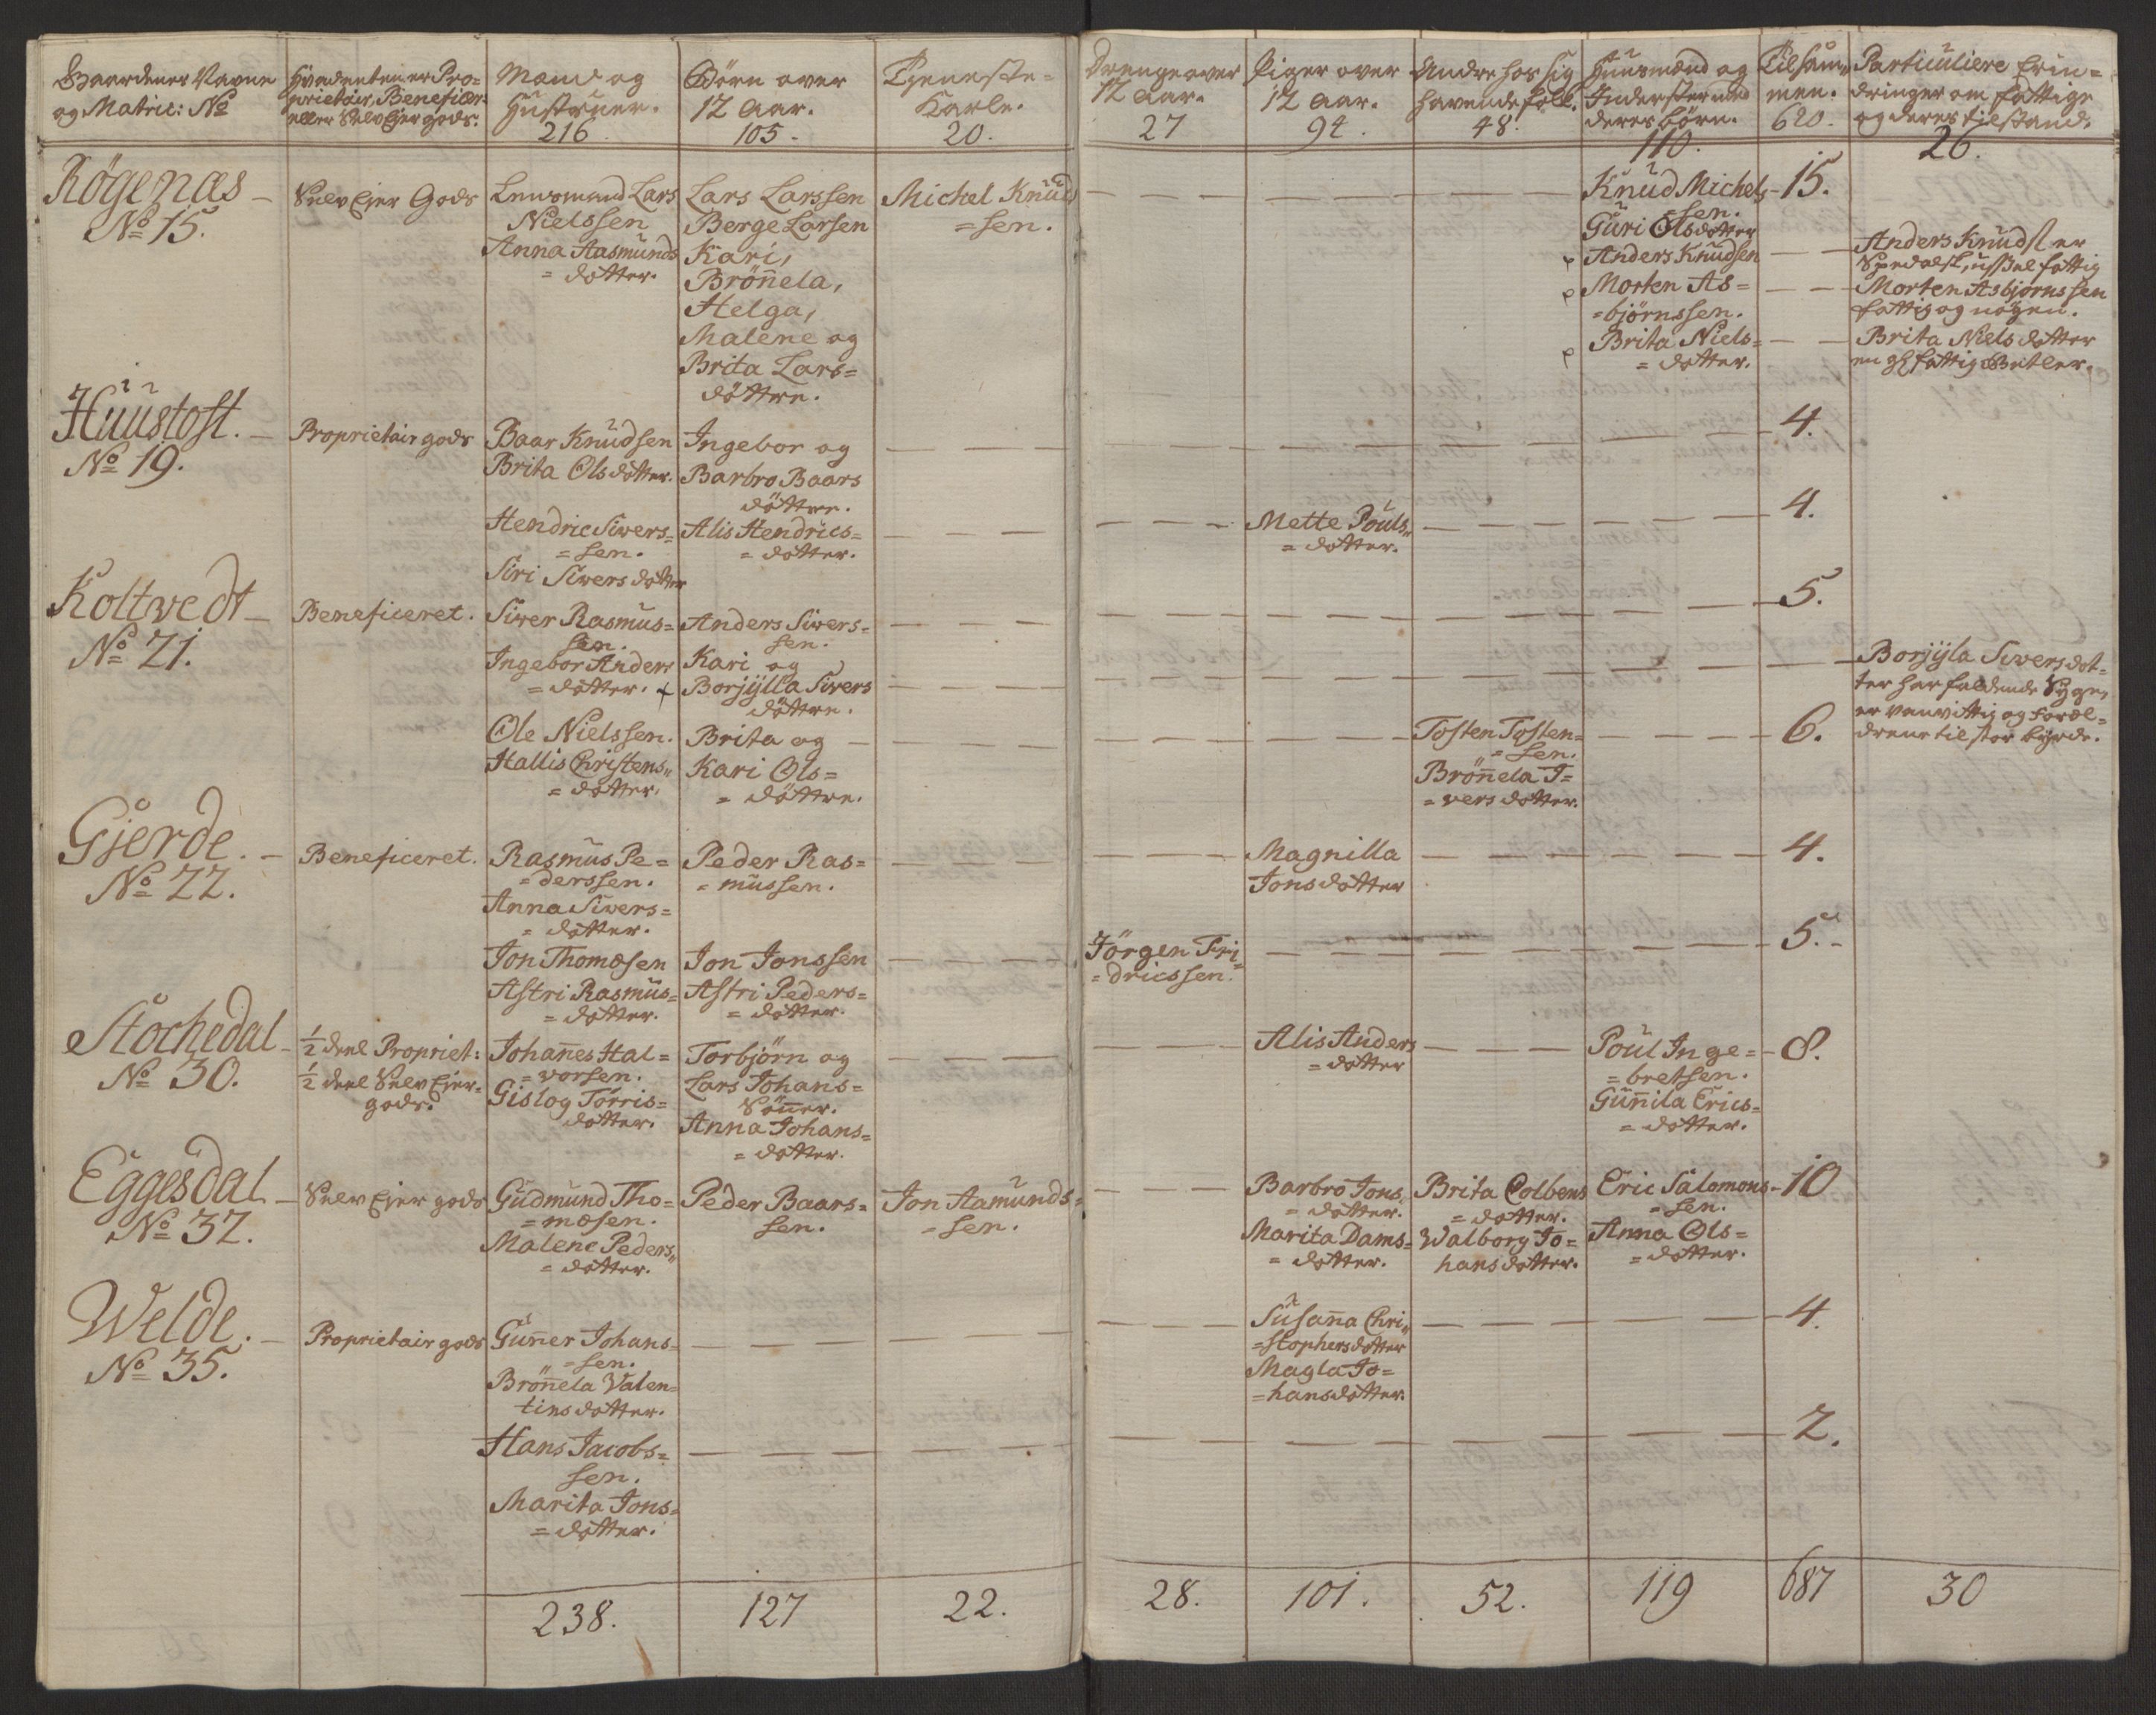 Gaardenes Navne
og Matric: No
Hvad enten er Pro=
prietair, Beneficer
eller Selv Ejer gods.
Mænd og
Hustruer.
216
Börn over
12 Aar.
105.
Tjeneste=
Karle.
20.
Drenge over
12 Aar.
27
Piger over
12 Aar.
94.
Andre hos sig
havende folk.
48.
Huusmænd og
Inderster med
deres börn.
110.
Tilsam=
men.
620.
Particuliere Erin=
dringer om fattige
og deres tilstand.
26.
Rögenæs
No 15.
Selv Ejer Gods
Lensmand Lars
Nielssen
Anna Aasmunds
= dotter.
Lars Larssen
Berge Larsen
Kari,
Brönnela,
Helga,
Malene og
Brita Lars=
döttre.
Michel Knud
= sen.
Knud Michels
= sen.
Guri Olsdotter
Anders Knudsen
Morten As=
=björnssen.
Brita Niels=
= dotter.
15.
Anders Knuds: er
Spedalsk, ussel fattig
Morten Asbjörnssen
fattig og nögen.
Brita Niels dotter
en fattig Betler.
Huustoft.
No 19.
Proprietair gods
Baar Knudsen
Brita Olsdotter.
Ingebor og
Barbro Baars
döttre.
4.
Hendric Siwers=
= sen.
Siri Siwersdotter
Alis Hendrics=
= dotter.
Mette Pouls
= dotter.
4.
Koltvedt
No 21.
Beneficeret.
Siwer Rasmus=
sen.
Ingebor Anders
= dotter.
Anders Siwers=
sen.
Kari og
Borjylla Siwers
döttre.
5.
Borjyla Siversdot=
ter har faldende Syge,
er vanvittig og foræl=
drene til stor byrde.
Ole Nielssen.
Hallis Christens
= dotter.
Brita og
Kari Ols=
= döttre.
Tosten Tosten=
= sen.
Brönnela I=
= vers dotter.
6.
Gjerde.
No 22.
Beneficeret.
Rasmus Pe=
= derssen.
Anna Siwers=
= dotter.
Peder Ras=
= mussen.
Magnilla
Jonsdotter
4.
Jon Thomæsen
Astri Rasmus=
= dotter.
Jon Jonssen
Astri Peders=
= dotter.
Jörgen Fri
= dricssen.
5.
Stochedal
No 30.
½ deel Propriet:
½ deel Selv Ejer=
gods.
Johannes Hal=
= vorsen.
Gislog Torris=
dotter.
Torbjörn og
Lars Johans=
Sönner.
Anna Johans=
= dotter.
Alis Anders
= dotter
Poul Inge=
= bretsen.
Gunnila Erics=
= dotter.
8.
Eggesdal
No 32.
Selv Ejer gods
Gudmund Tho=
= mæsen.
Malene Peders
= dotter.
Peder Baars=
sen.
Jon Aamunds=
= sen.
Barbro Jons
= dotter.
Marita Dams=
= dotter.
Brita Colbens
= dotter.
Walborg Jo=
hansdotter.
Eric Salomons
= sen.
Anna Ols=
= dotter.
10
Welde.
No 35.
Proprietair gods
Gunner Johans=
= sen.
Brönnela Valen=
tinsdotter.
Susanna Chri
= stophersdotter
Magla Jo=
= hansdotter.
4.
Hans Jacobs=
sen.
Marita Jons=
= dotter.
2.
238.
127
22.
28.
101.
52.
119
687
30